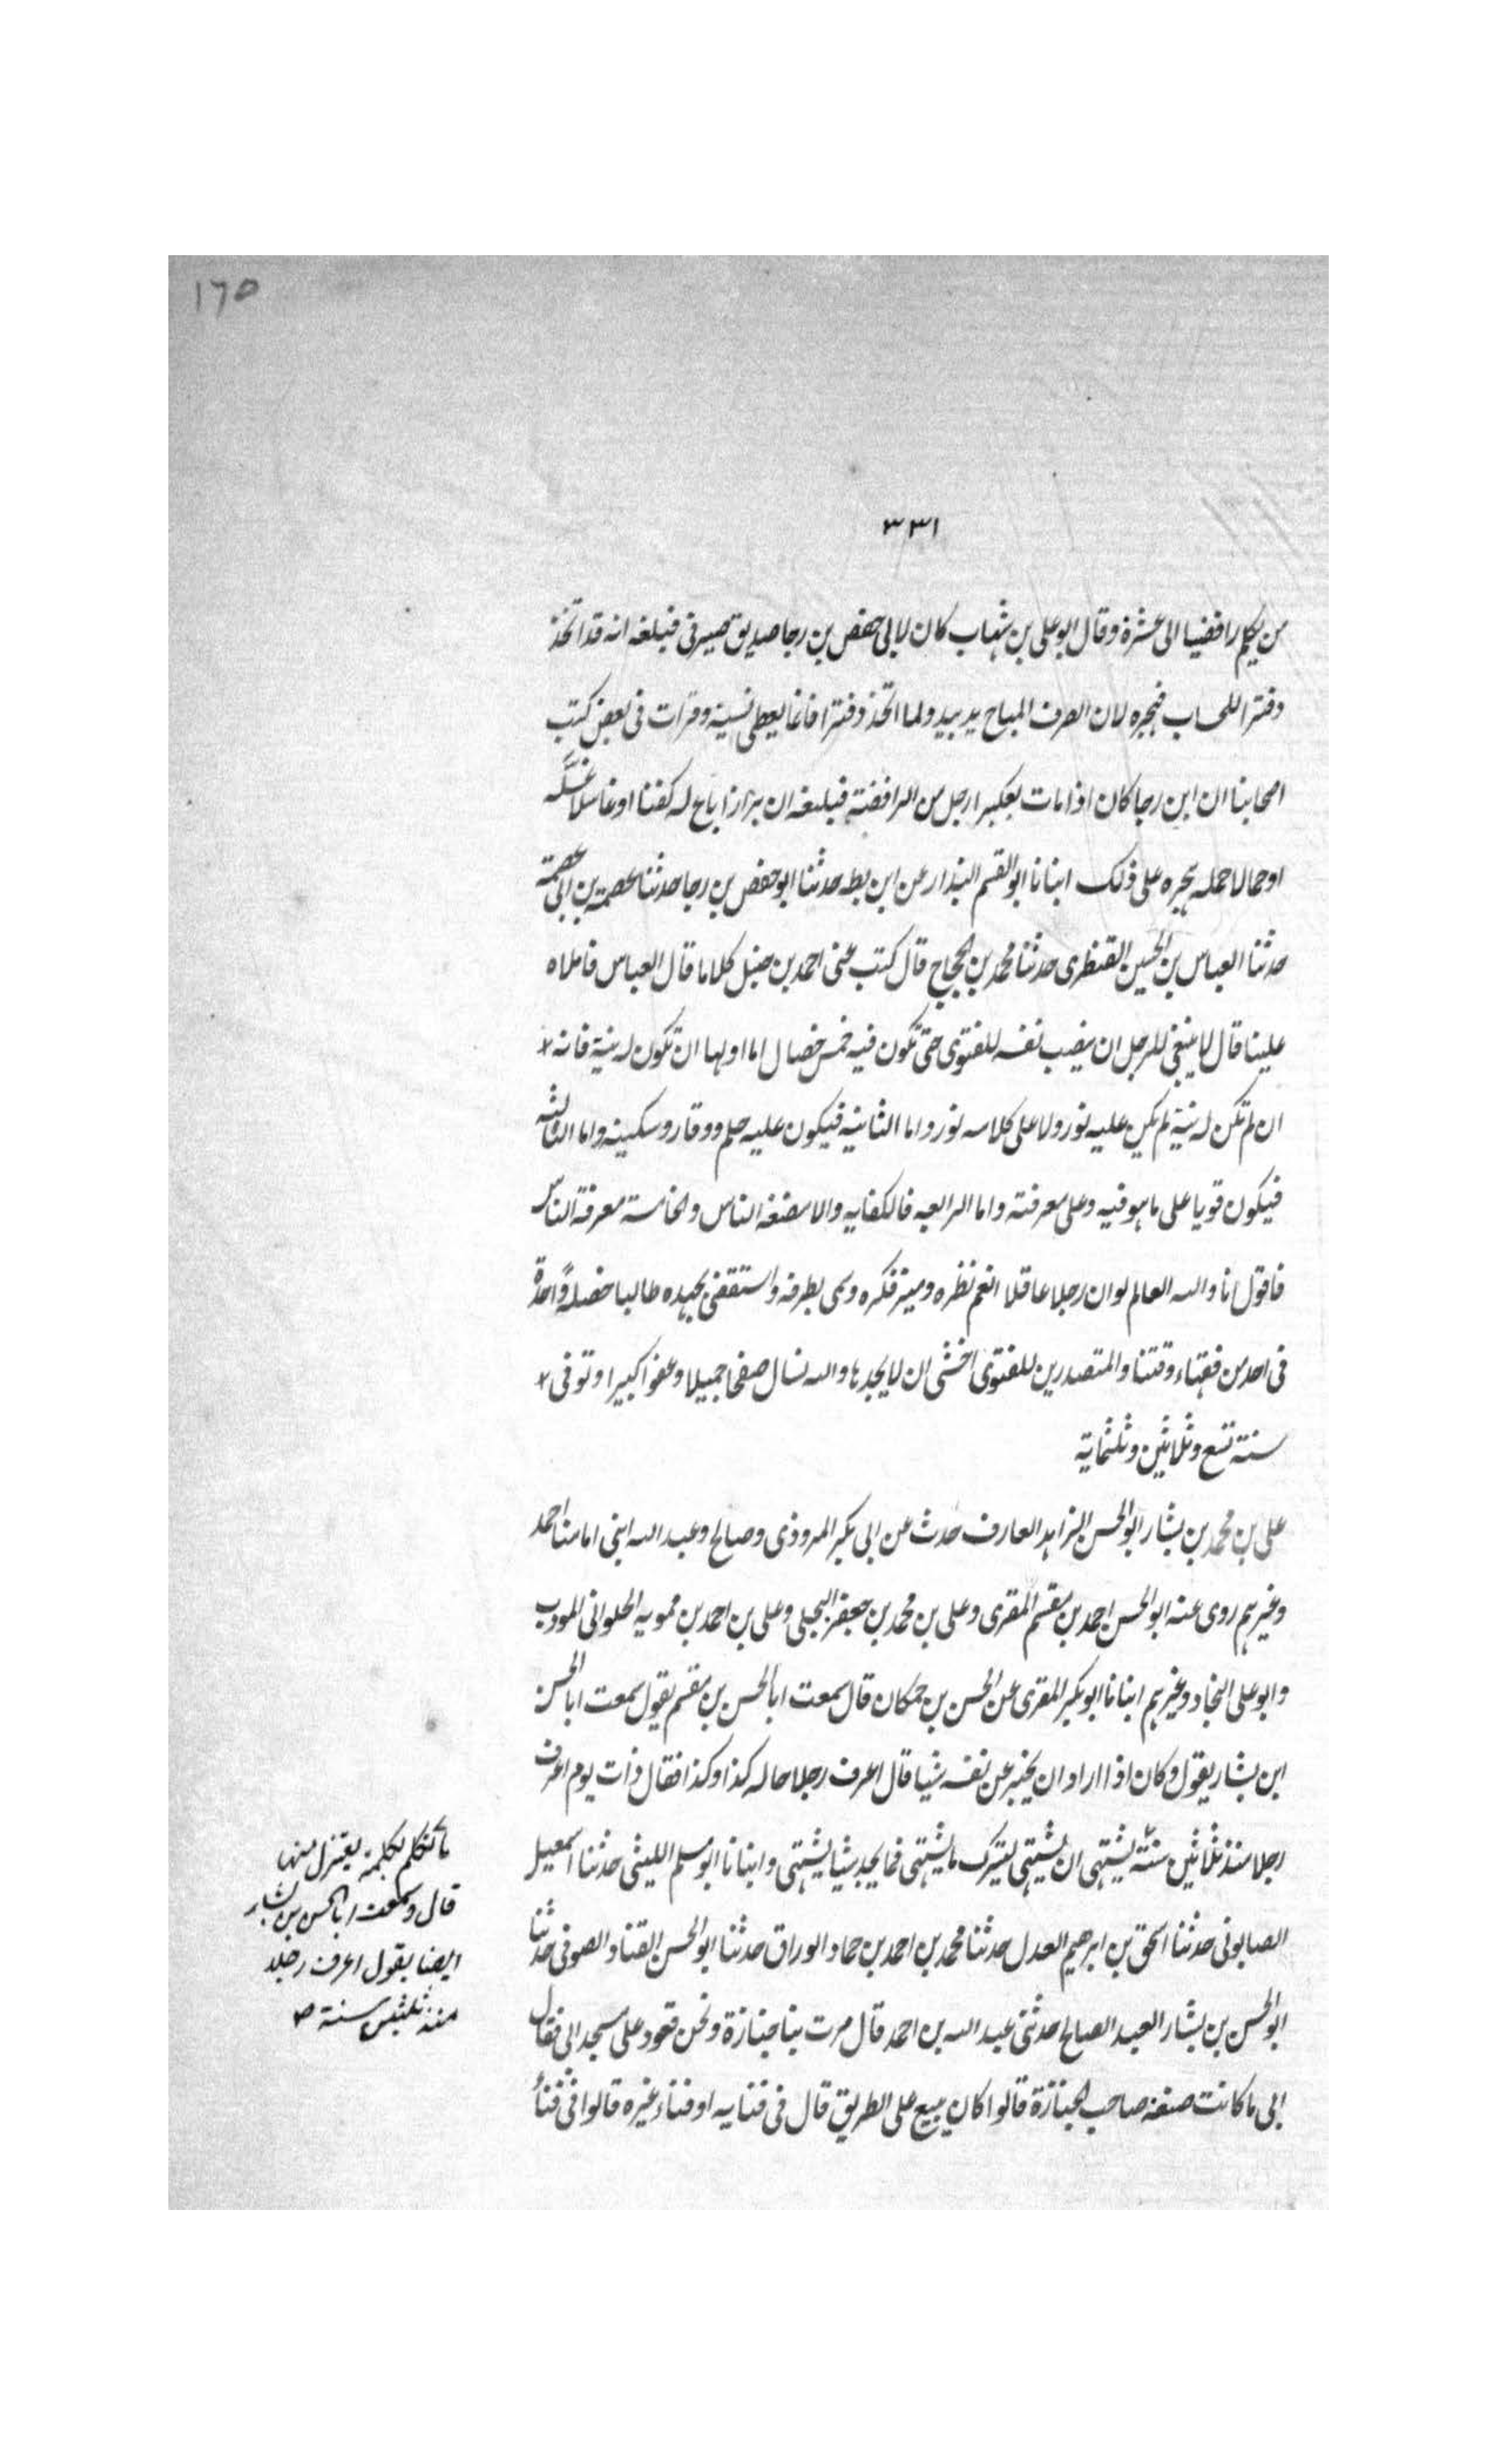 ١٦٥
٣٣١
من يكلم رافضيا الى عشرة وقال ابو علي بن شهاب كان لابي حفص بن رجا صديق صيرفى فبلغه انه قد اتخذ
دفترا للحساب فهجره لان الصرف المباح يد بيد ولما اتخذ دفترا فانما يعطى نسية وقرات فى بعض كتب
اصحابنا ان ابن رجا كان اذا مات بعكبرا رجل من الرافضة فبلغه ان بزازا باع له كفنا او غاسلا غسله
او حمالا حمله هجره على ذلك انبانا ابو القسم البندار عن ابن بطه حدثنا ابو حفص بن رجا حدثنا عصمة بن ابى عصمة
حدثنا العباس بن الحسين القنطرى حدثنا محمد بن الحجاج قال كتب عنى احمد بن حنبل كلاما قال العباس فاملاه
علينا قال لا ينبغى للرجل ان ينصب نفسه للفتوى حتى تكون فيه خمس خصال اما اولها ان تكون له نية فانه
ان لم تكن له نية لم يكن عليه نور ولا على كلامه نور واما الثانية فيكون عليه حلم ووقار وسكينه واما الثالثه
فيكون قويا على ما هو فيه وعلى معرفته واما الرابعه فالكفايه والا مضغه الناس والخامسة معرفة الناس
فاقول انا والله العالم لو ان رجلا عاقلا انعم نظره وميز فكره وسمى بطرفه واستقصى بجهده طالبا خصلةً واحدة
فى احد من فقهاء وقتنا والمتصدرين للفتوى اخشى ان لا يجدها والله نسال صفحا جميلا وعفوا كبيرا وتوفى
سنة تسع وثلاثين وثلثماية
على بن محمد بن بشار ابو الحسن الزاهد العارف حدث عن ابى بكر المروذى وصالح وعبد الله ابنى امامنا احمد
وغيرهم روى عنه ابو الحسن احمد بن مقسم المقرى وعلى بن محمد بن جعفر البجلى وعلى بن احمد بن ممويه الحلوانى المودب
وابو على النجاد وغيرهم انبانا ابو بكر المقرى عن الحسن بن حمكان قال سمعت ابا الحسن بن مقسم يقول سمعت ابا الحسن
ابن بشار يقول وكان اذا اراد ان يخبر عن نفسه شيا قال اعرف رجلا حاله كذا وكذا فقال ذات يوم اعرف
رجلا منذ ثلاثين سنة يشتهى ان يشتهى ليترك ما يشتهى فما يجد شيا يشتهى وانبانا ابو مسلم الليثى حدثنا اسمعيل
الصابونى حدثنا اسحق بن ابرهيم العدل حدثنا محمد بن احمد بن حماد الوراق حدثنا ابو الحسن القناد الصوفى حدثنا
ابو الحسن بن بشار العبد الصالح حدثنى عبد الله بن احمد قال مرت بنا جنازة ونحن قعود على مسجد ابى فقال
ابى ما كانت صنعة صاحب الجنازة قالوا كان يبيع على الطريق قال فى فنايه او فناء غيره قالوا فى فناء
ما تكلم بكلمة يعتزل منها
قال وسمعت ابا الحسن بن بشار
ايضا يقول اعرف رجلا
منذ ثلثين سنة